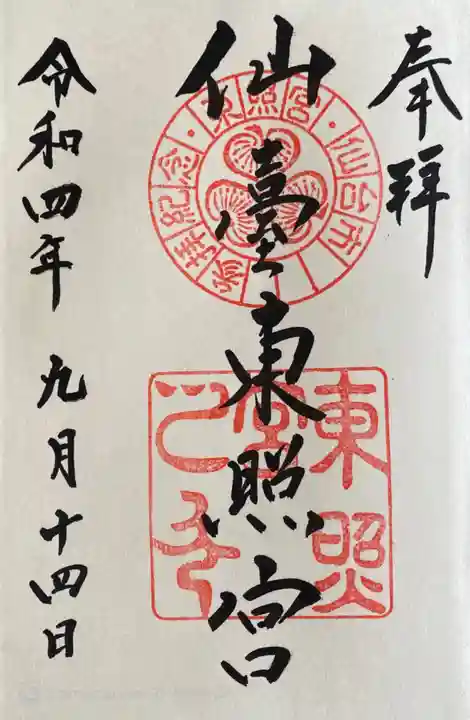 奉拝
仙臺東照宮
令和四年 九月十四日
東照宮・仙台市
参拝記念・
東照宮